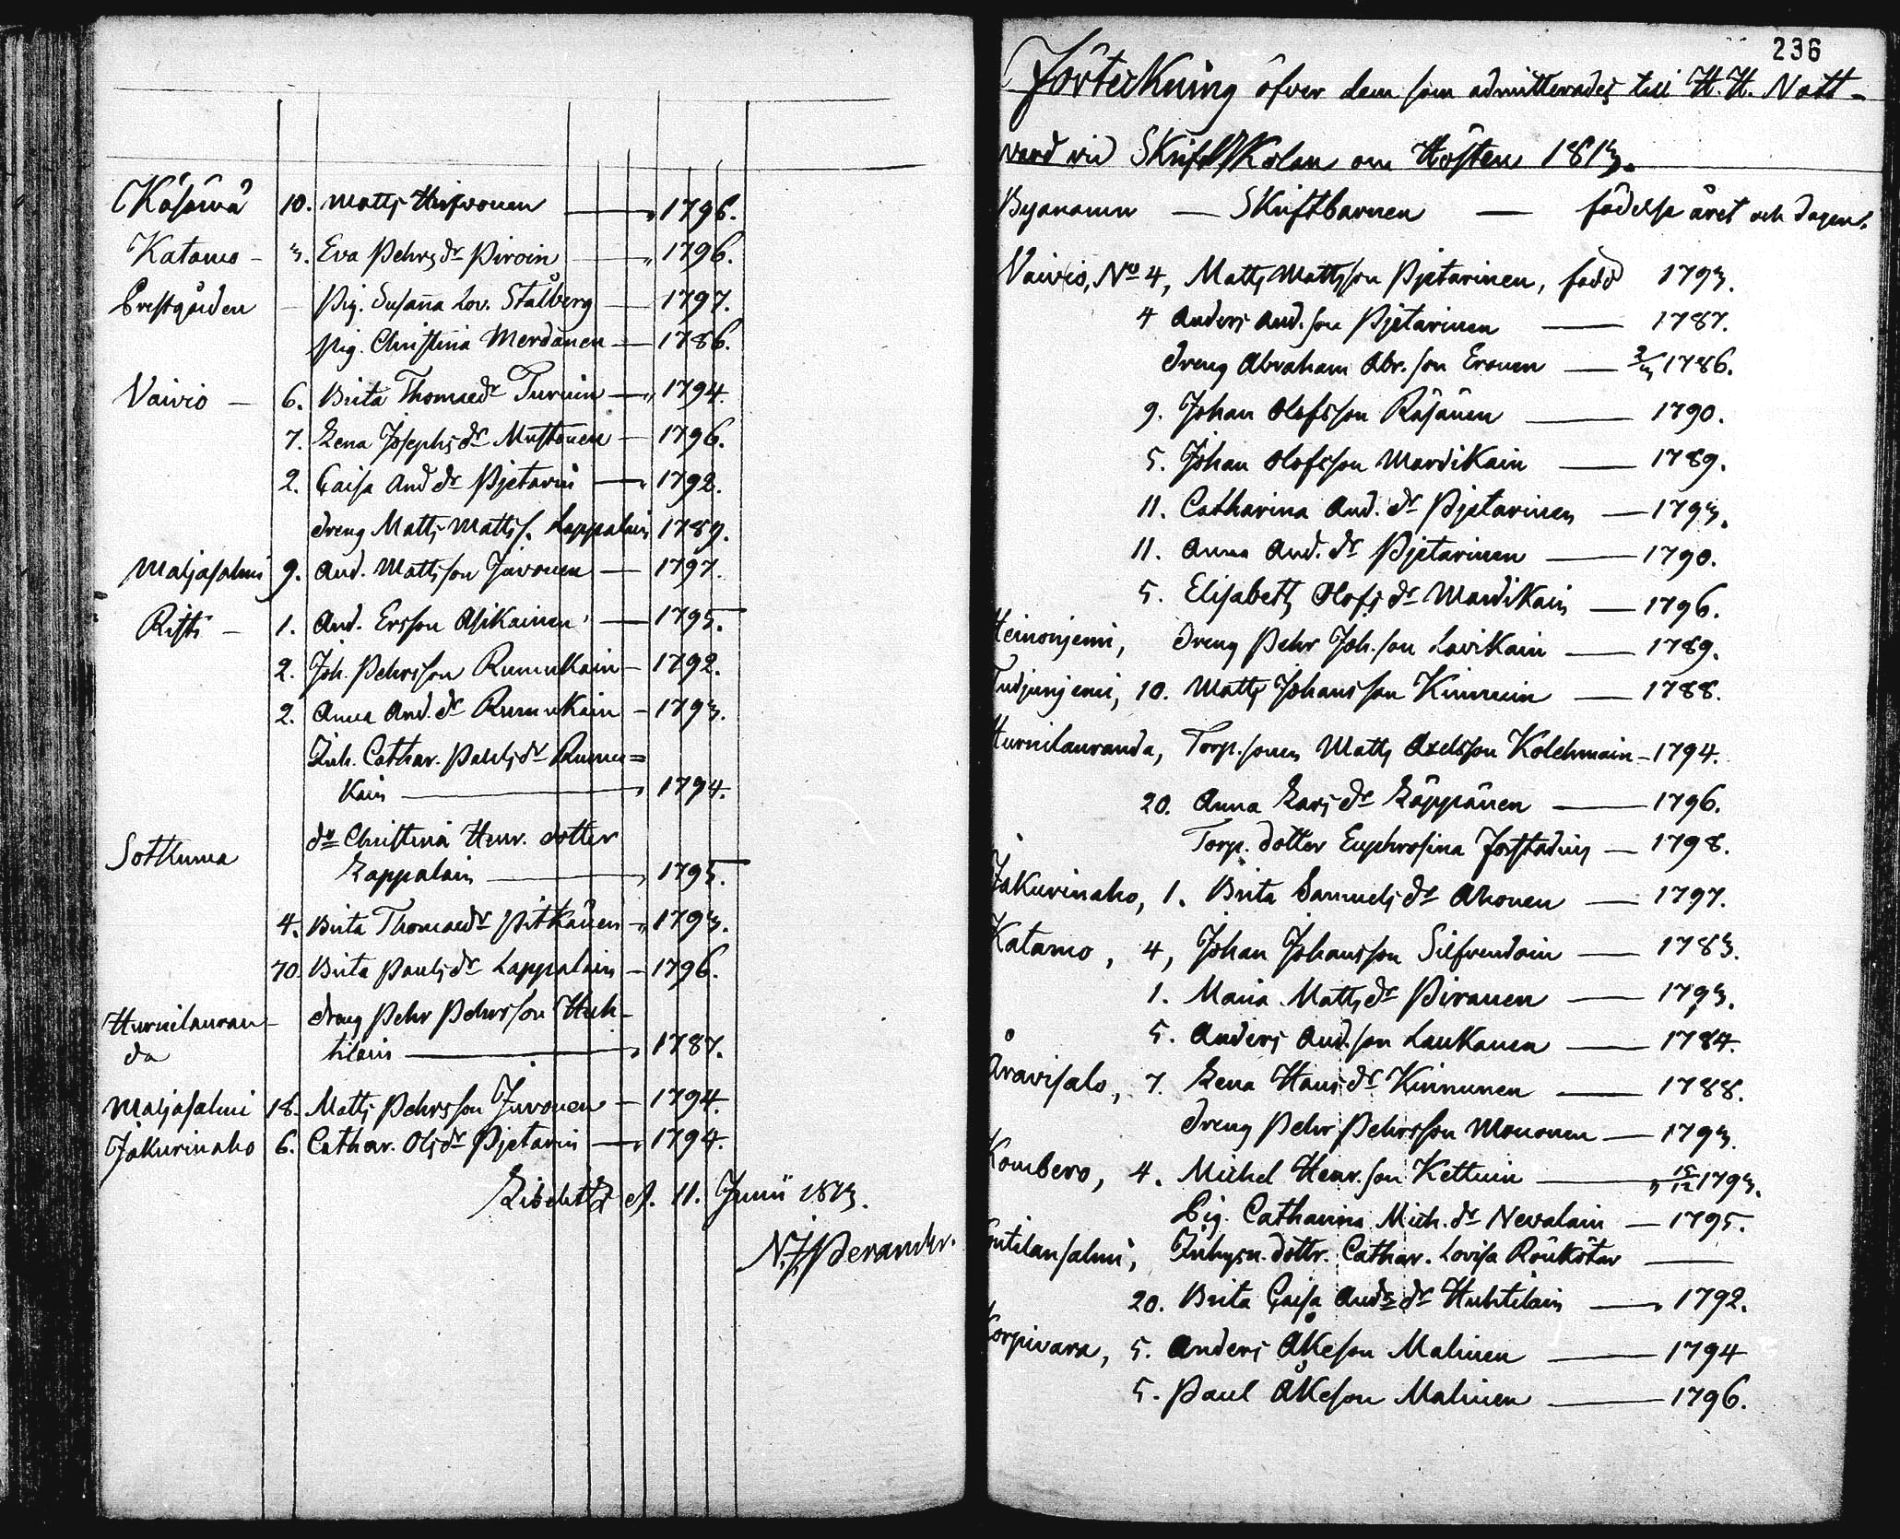 Käsämä 10. Matts Hirfvonen 1796.
Katamo 3. Eva Pehrs dr Piroin 1796.
Prestgården Pig. Susanna Lov. Stålberg 1797.
Pig. Christina Merdänen 1786.
Vaivio 6. Brita Thomae dr Turuin 1794.
7. Lena Josephs dr Mustonen 1796.
2. Caisa And dr Pjetarin 1792.
Dreng Matts Mattss. Lappalain 1789.
Maljasalmi 9. And. Mattsson Juvonen 1797.
Risti 1. And. Ersson Asikainen 1795.
2. Joh. Pehrsson Rumukain 1792.
2. Anna And. dr Rumukain 1793.
Inh. Cathar. Pauls dr Rumu=
kain 1794.
Sotkuma do Christina Henr. dotter
Lappalain 1795.
4. Brita Thomae dr Pitkänen 1793.
70. Brita Pauls dr Lappalain 1796.
Hurnilauran- dreng Pehr Pehrsson Huh-
da tilain 1787.
Maljasalmi 18. Matts Pehrsson Juvonen 1794.
Jakurinaho 6. Cathar. Ols dr Pjetarin 1794.
Libelitz d. 11. Junii 1813.
N. J. Perander.
236
Förteckning öfver dem som admitterades till H. H. Natt-
vard vid Skriftskolan om Hösten 1813.
Byanamn — Skriftbarnen — födelse året och dagen.
Vaivio, No 4, Matts Mattsson Pjetarinen, född 1793.
4 Anders And.son Pjetarinen 1787.
Dreng Abraham Abr.son Eronen 2/3 1786.
9. Johan Olofsson Räsänen 1790.
5. Johan Olofsson Mardikain 1789.
11. Catharina And. dr Pjetarinen 1793.
11. Anna And. dr Pjetarinen 1790.
5. Elisabeth Olofs dr Mardikain 1796.
Heinonjemi, Dreng Pehr Joh.son Lavikain 1789.
Tutjunjemi, 10. Matts Johansson Kinnuin 1788.
Hurnilauranda, Torp.sonen Matts Axelsson Kolehmain 1794.
20. Anna Lars dr Läppänen 1796.
Torp. dotter Euphrosina Forstadius 1798.
Jakurinaho, 1. Brita Samuels dr Ahonen 1797.
Katamo, 4, Johan Johansson Silfvendoin 1783.
1. Maria Matts dr Piranen 1793.
5. Anders And.son Laukanen 1784.
Åravisalo, 7. Lena Hans dr Kinnunen 1788.
Dreng Pehr Pehrsson Mononen 1793.
Kombero, 4. Michel Henr.son Kettuin 15/12 1793.
Pig. Catharina Mich. dr Nevalain 1795.
Ontilansalmi, Inhysn. dottr. Cathar. Lovisa Röukötar
20. Brita Caisa Anders dr Huhtilain 1792.
Korpivara, 5. Anders Åkeson Malinen 1794
5. Paul Åkeson Malinen 1796.